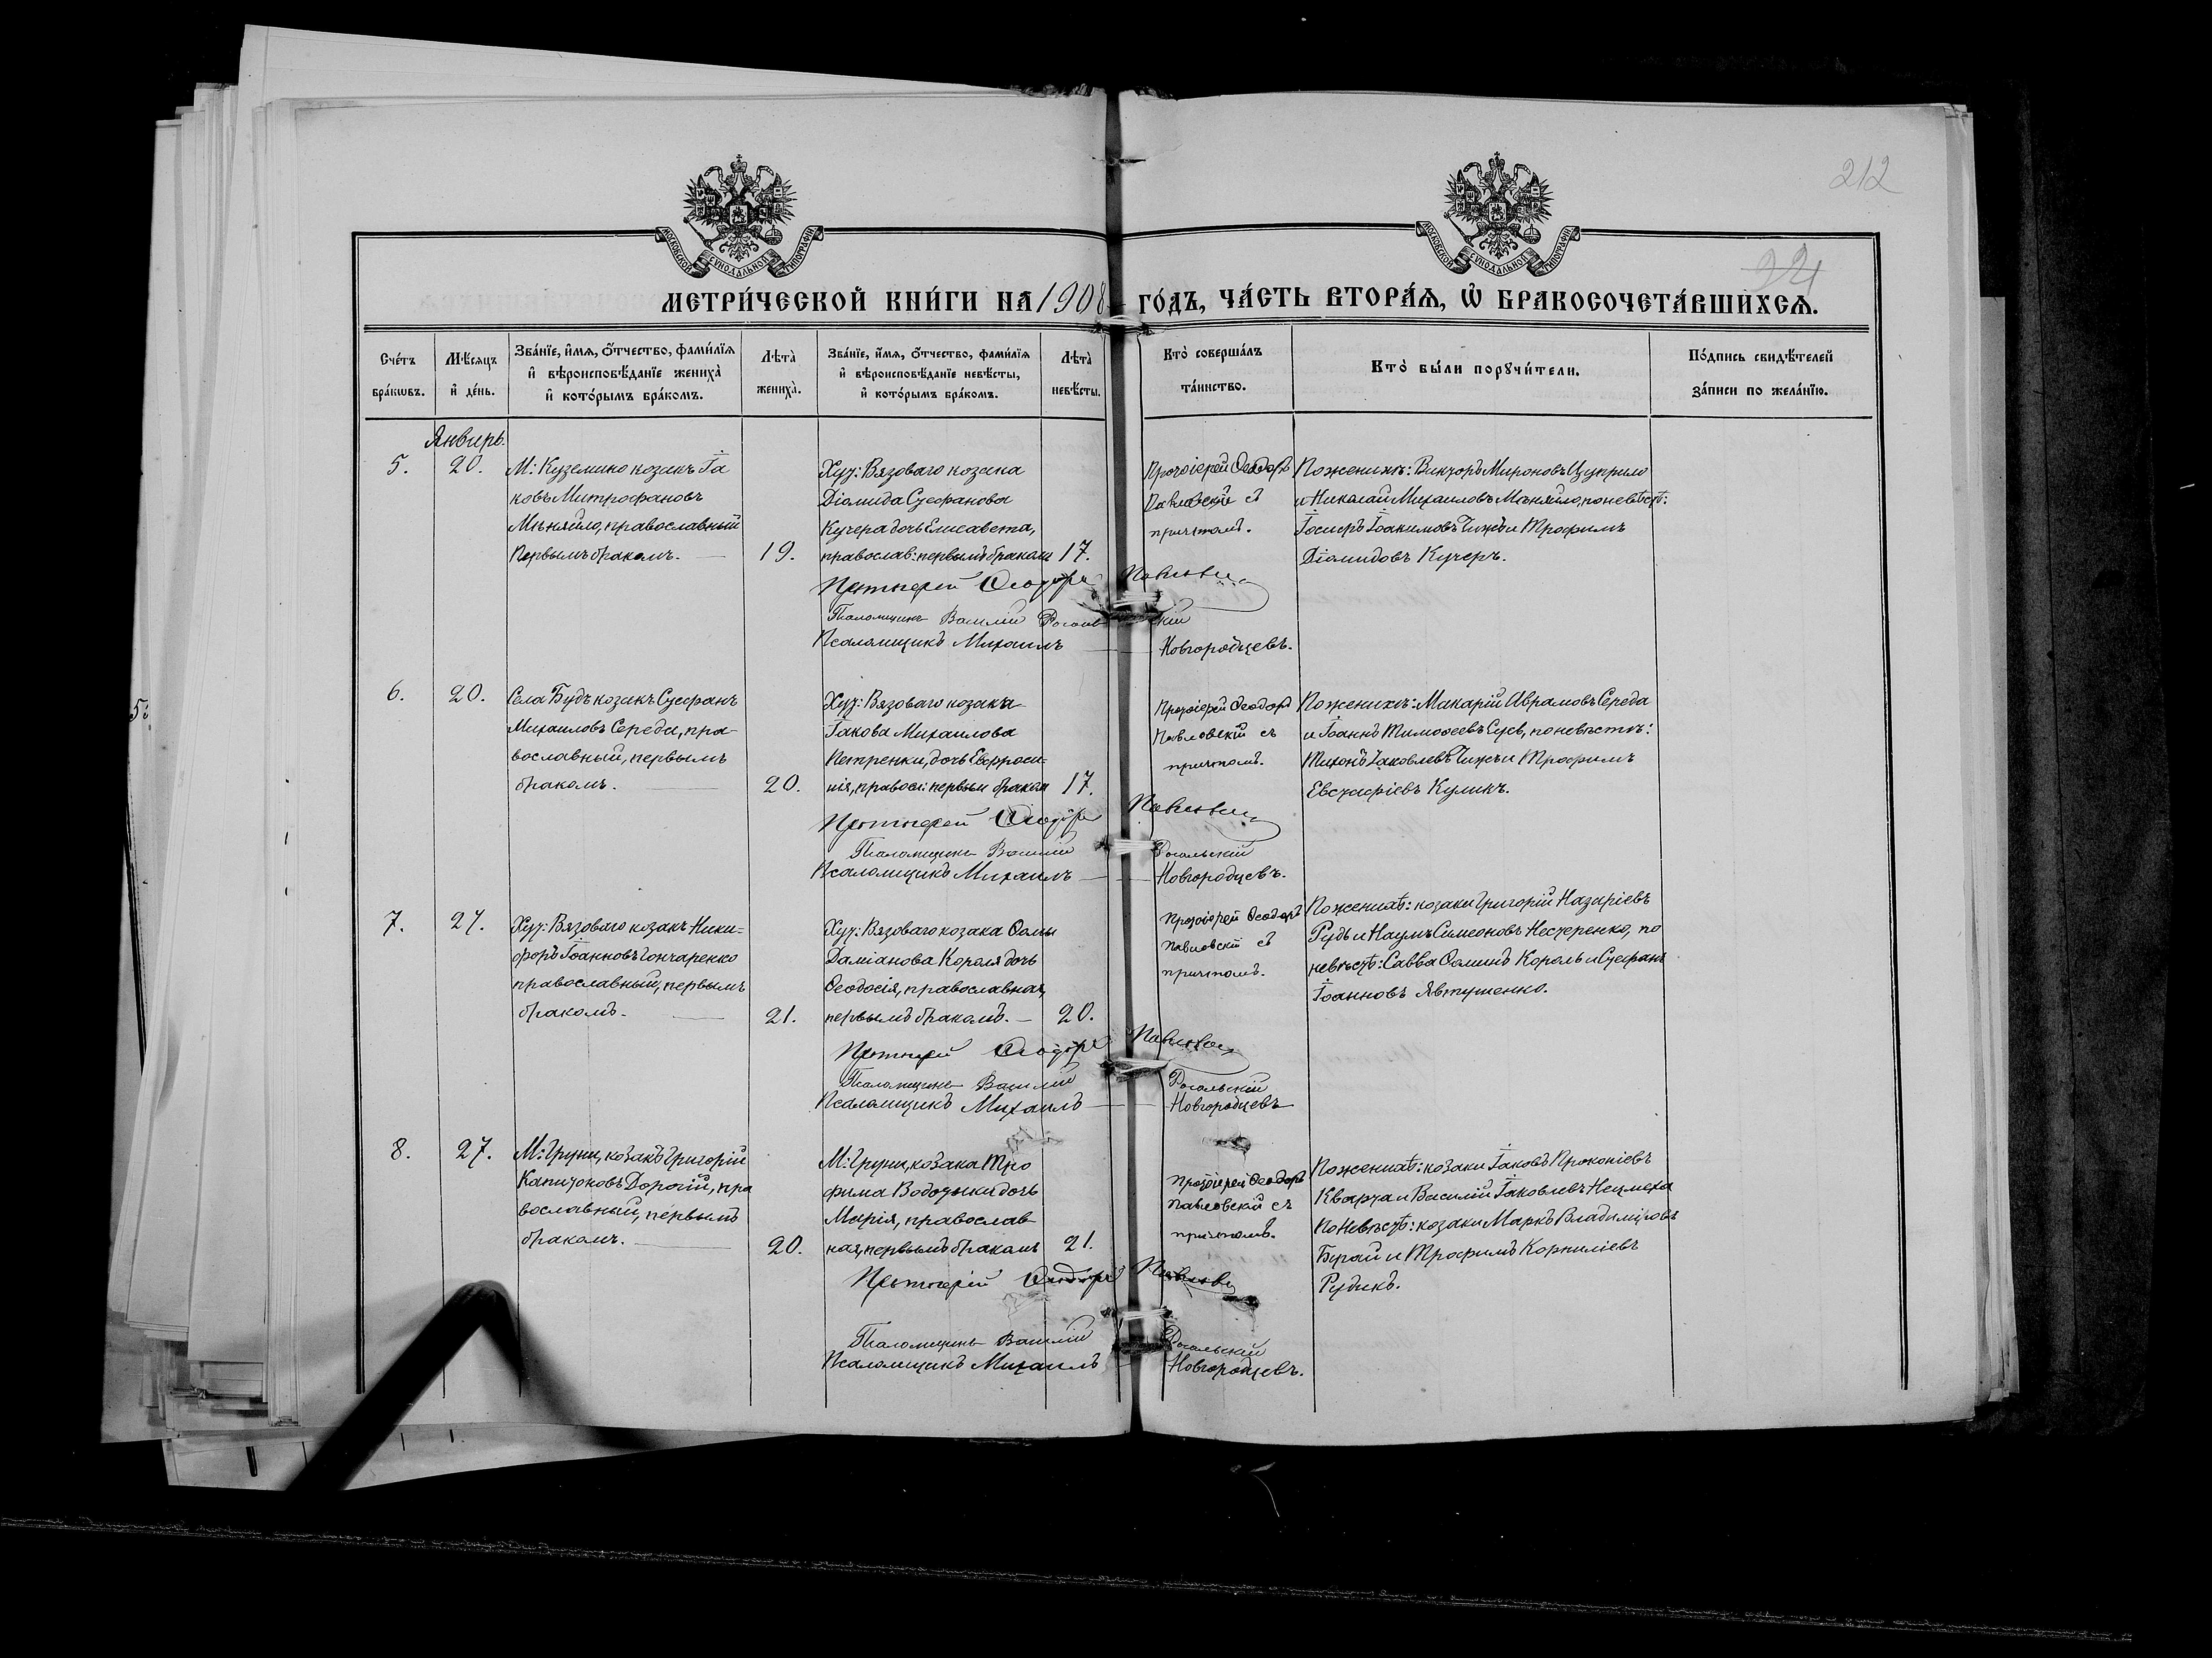 212
МОСКОВСКОЙ СѴНОДАЛЬНОЙ ТИПОГРАФІИ
МОСКОВСКОЙ СѴНОДАЛЬНОЙ ТИПОГРАФІИ
МЕТРИ́ЧЕСКОЙ КНИ́ГИ НА 1908 ГО́ДЪ, ЧА́СТЬ ВТОРА́Я, Ѡ҆ БРАКОСОЧЕТА́ВШИХСЯ.
Сче́тъ бра́кѡвъ.
Мѣ́сяцъ и҆ де́нь.
Зва́нїе, и҆́мя, ѻ҆́тчество, фами́лїя
и҆ вѣроисповѣ́данїе жениха̀
и҆ кото́рымъ бра́комъ.
Лѣта̀ жениха̀.
Зва́нїе, и҆́мя, ѻ҆́тчество, фами́лїя
и҆ вѣроисповѣ́данїе невѣ́сты,
и҆ кото́рымъ бра́комъ.
Лѣта̀ невѣ́сты.
Кто̀ соверша́лъ
та́инство.
Кто̀ бы́ли порꙋчи́тели.
По́дпись свидѣ́телей
за́писи по жела́нїю.
Январь.
5.
20.
М: Куземино козакъ Іа
ковъ Митрофановъ
Мѣняйло, православный
Первымъ бракомъ.
19.
Хут: Вязоваго козака
Діомида Стефанова
Кучера дочь Елисавета,
православ: первымъ бракомъ
17.
Протоіерей Ѳеодоръ
Павловскій съ
причтомъ.
По женихѣ: Викторъ Мироновъ
и Николай Михаиловъ Мѣняйло, по невѣстѣ:
Іосифъ Іоакимовъ Чижъ и Трофимъ
Діомидовъ Кучеръ.
Протоіерей Ѳеодоръ Павловскій
Псаломщикъ Василій Рогальскій
Псаломщикъ Михаилъ Новгородцевъ.
6.
20.
Села Будъ козакъ Стефанъ
Михаиловъ Середа, пра-
вославный, первымъ
бракомъ.
20.
Хут: Вязоваго козака
Іакова Михаилова
Петренки, дочь Евфроси-
нія, правосл: первым браком
17.
Протоіерей Ѳеодоръ
Павловскій съ
причтомъ.
По женихѣ: Макарій Аврамовъ Середа
и Іоаннъ Тимофеевъ по невѣстѣ:
Тихонъ Іаковлевъ Чижъ и Трофимъ
Евстафіевъ Куликъ.
Протоіерей Ѳеодоръ Павловскій
Псаломщикъ Василій Рогальскій
Псаломщикъ Михаилъ Новгородцевъ.
7.
27.
Хут: Вязоваго козакъ Ники-
форъ Іоанновъ Гончаренко
православный, первымъ
бракомъ.
21.
Хут: Вязоваго козака Ѳомы
Даміанова Короля дочь
Ѳеодосія, православная,
первымъ бракомъ.
20.
Протоіерей Ѳеодоръ
Павловскій съ
причтомъ.
По женихѣ: козаки Григорій Назаріевъ
Рудь и Наумъ Симеоновъ Нестеренко, по
невѣстѣ: Савва Ѳоминъ Король и Стефанъ
Іоанновъ Явтушенко.
Протоіерей Ѳеодоръ Павловскій
Псаломщикъ Василій Рогальскій
Псаломщикъ Михаилъ Новгородцевъ
8.
27.
М: Груни, козакъ Григорій
Капитоновъ Дорогій, пра
вославный, первымъ
бракомъ.
20.
М: Груни, козака Тро
фима Водотыки дочь
Марія, православ-
ная, первымъ бракомъ
21.
Протоіерей Ѳеодоръ
Павловскій съ
причтомъ.
По женихѣ: козаки Іаковъ Прокопіевъ
Кварта и Василій Іаковлевъ
По невѣстѣ: козаки Маркъ Владиміровъ
Бугай и Трофимъ Корниліевъ
Рудикъ.
Протоіерей Ѳеодоръ Павловскій
Псаломщикъ Василій Рогальскій
Псаломщикъ Михаилъ Новгородцевъ.